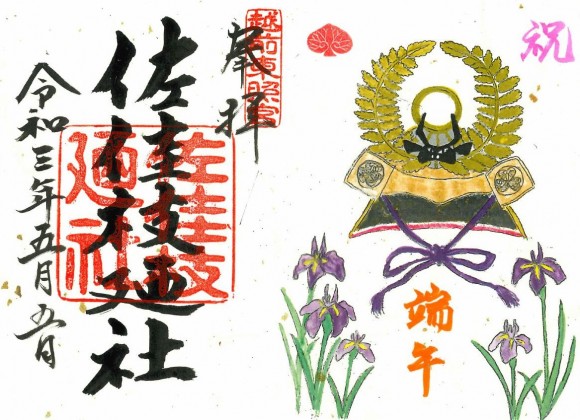 祝
端午
越前東照宮
奉拝
佐佳枝廼社
佐佳枝
廼社
令和三年五月五日